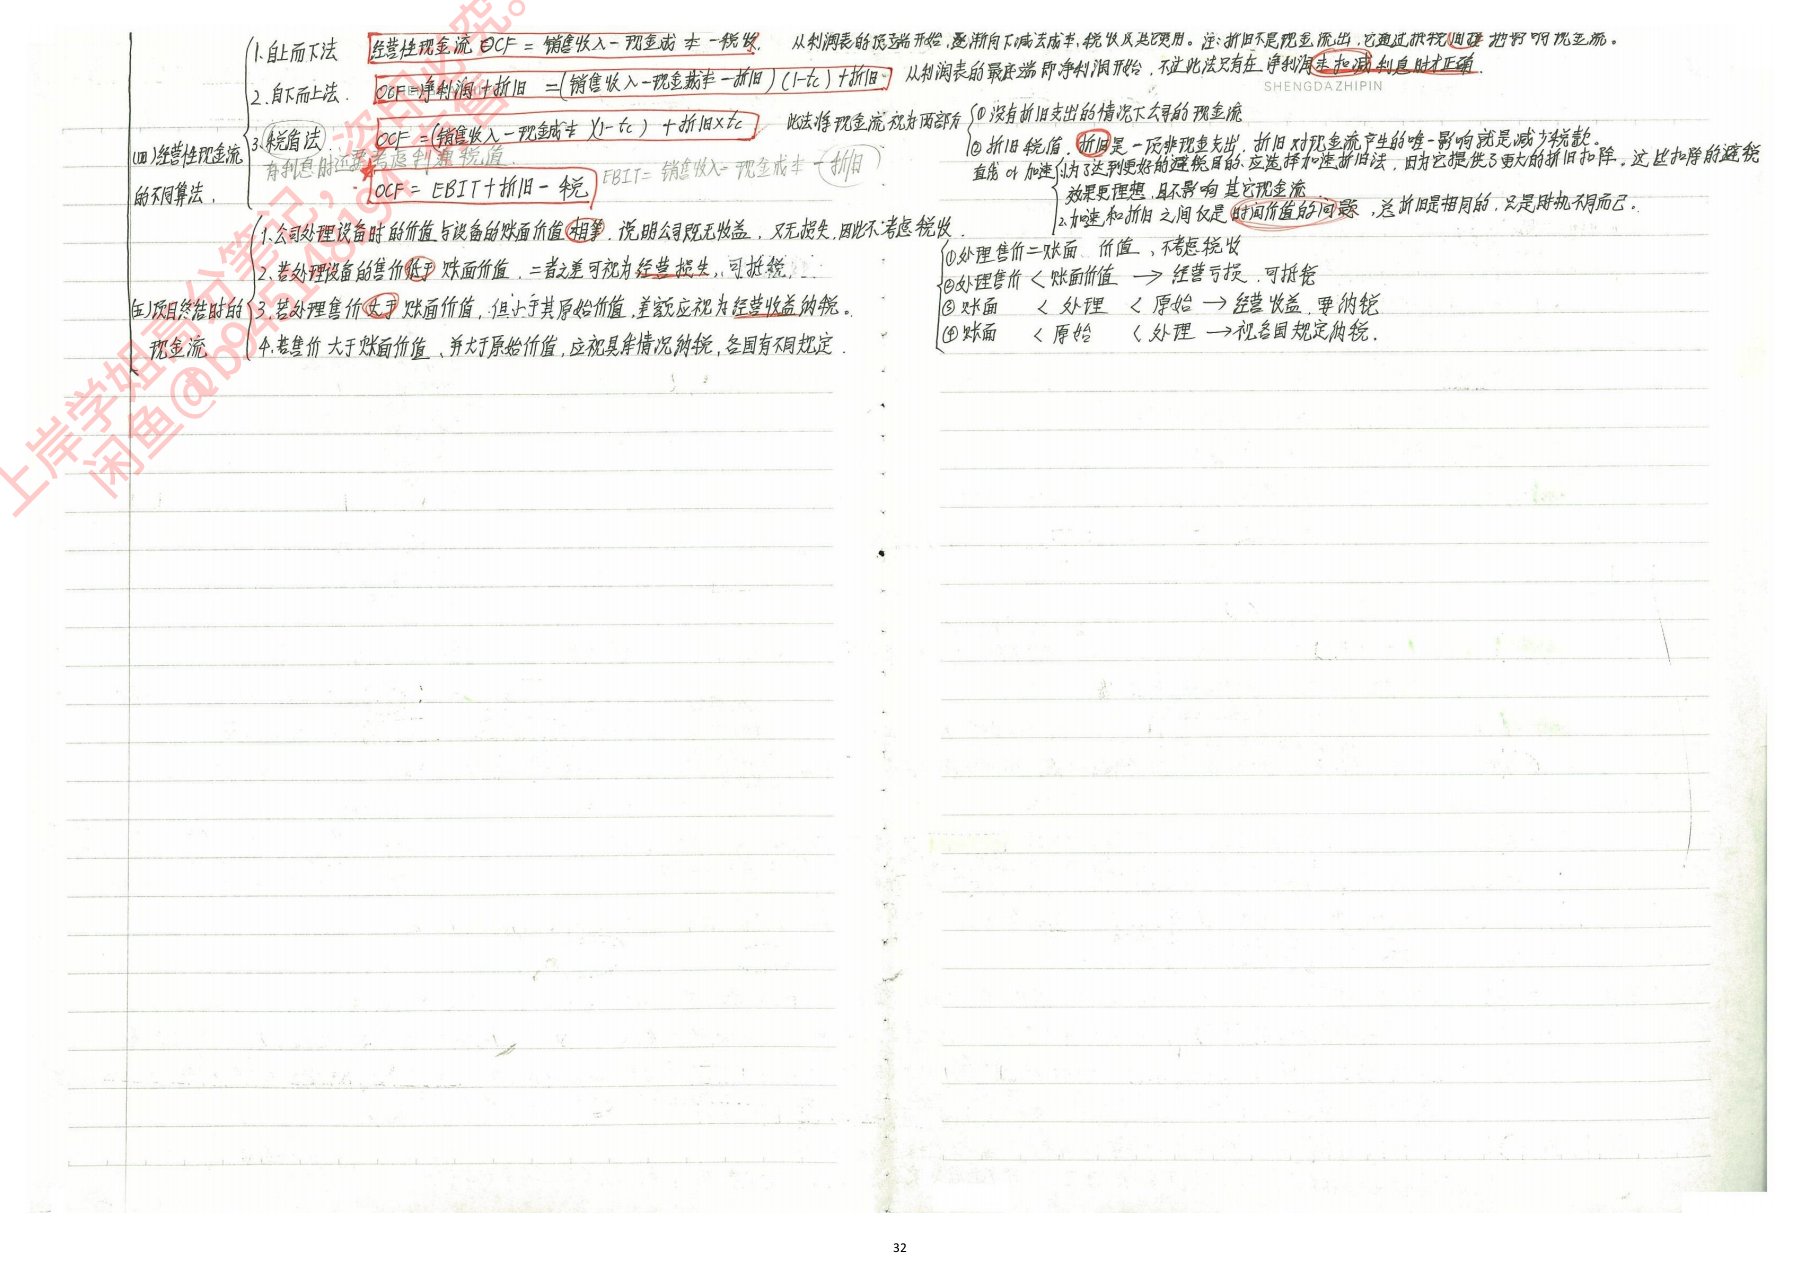 (四)经营性现金流
的不同算法.
1.自上而下法 经营性现金流 OCF = 销售收入-现金成本-税收. 从利润表的顶端开始,逐渐向下减去成本,税收及其它费用。注:折旧不是现金流出,它通过抵税间接地影响现金流。
2.自下而上法. OCF=净利润+折旧 =(销售收入-现金成本-折旧)(1-tc)+折旧. 从利润表的最底端即净利润开始,不过此法只有在净利润未扣减利息时才正确.
SHENGDAZHIPIN
3.税盾法. OCF =(销售收入-现金成本)(1-tc) +折旧×tc 此法将现金流视为两部分
①没有折旧支出的情况下公司的现金流
②折旧税盾.折旧是一项非现金支出,折旧对现金流产生的唯一影响就是减少税款。
有利息时还要考虑利息税盾.
OCF = EBIT+折旧-税 EBIT= 销售收入-现金成本-折旧
直线or加速
1.为了达到更好的避税目的,应选择加速折旧法,因为它提供了更大的折旧扣除。这些扣除的避税
效果更理想,且不影响其它现金流
2.加速和折旧之间仅是时间价值的问题,总折旧是相同的,只是时机不同而已。
(五)项目终结时的
现金流
1.公司处理设备时的价值与设备的账面价值相等,说明公司既无收益,又无损失,因此不考虑税收.
2.若处理设备的售价低于账面价值,二者之差可视为经营损失,可抵税,
3.若处理售价大于账面价值,但小于其原始价值,差额应视为经营收益纳税。
4.若售价大于账面价值,并大于原始价值,应视具体情况纳税,各国有不同规定.
①处理售价=账面价值、不考虑税收
②处理售价<账面价值 → 经营亏损.可抵税
③账面 < 处理 < 原始 → 经营收益,要纳税
④账面 < 原始 < 处理 → 视各国规定纳税.
上岸学姐高分笔记,盗印必究。
32